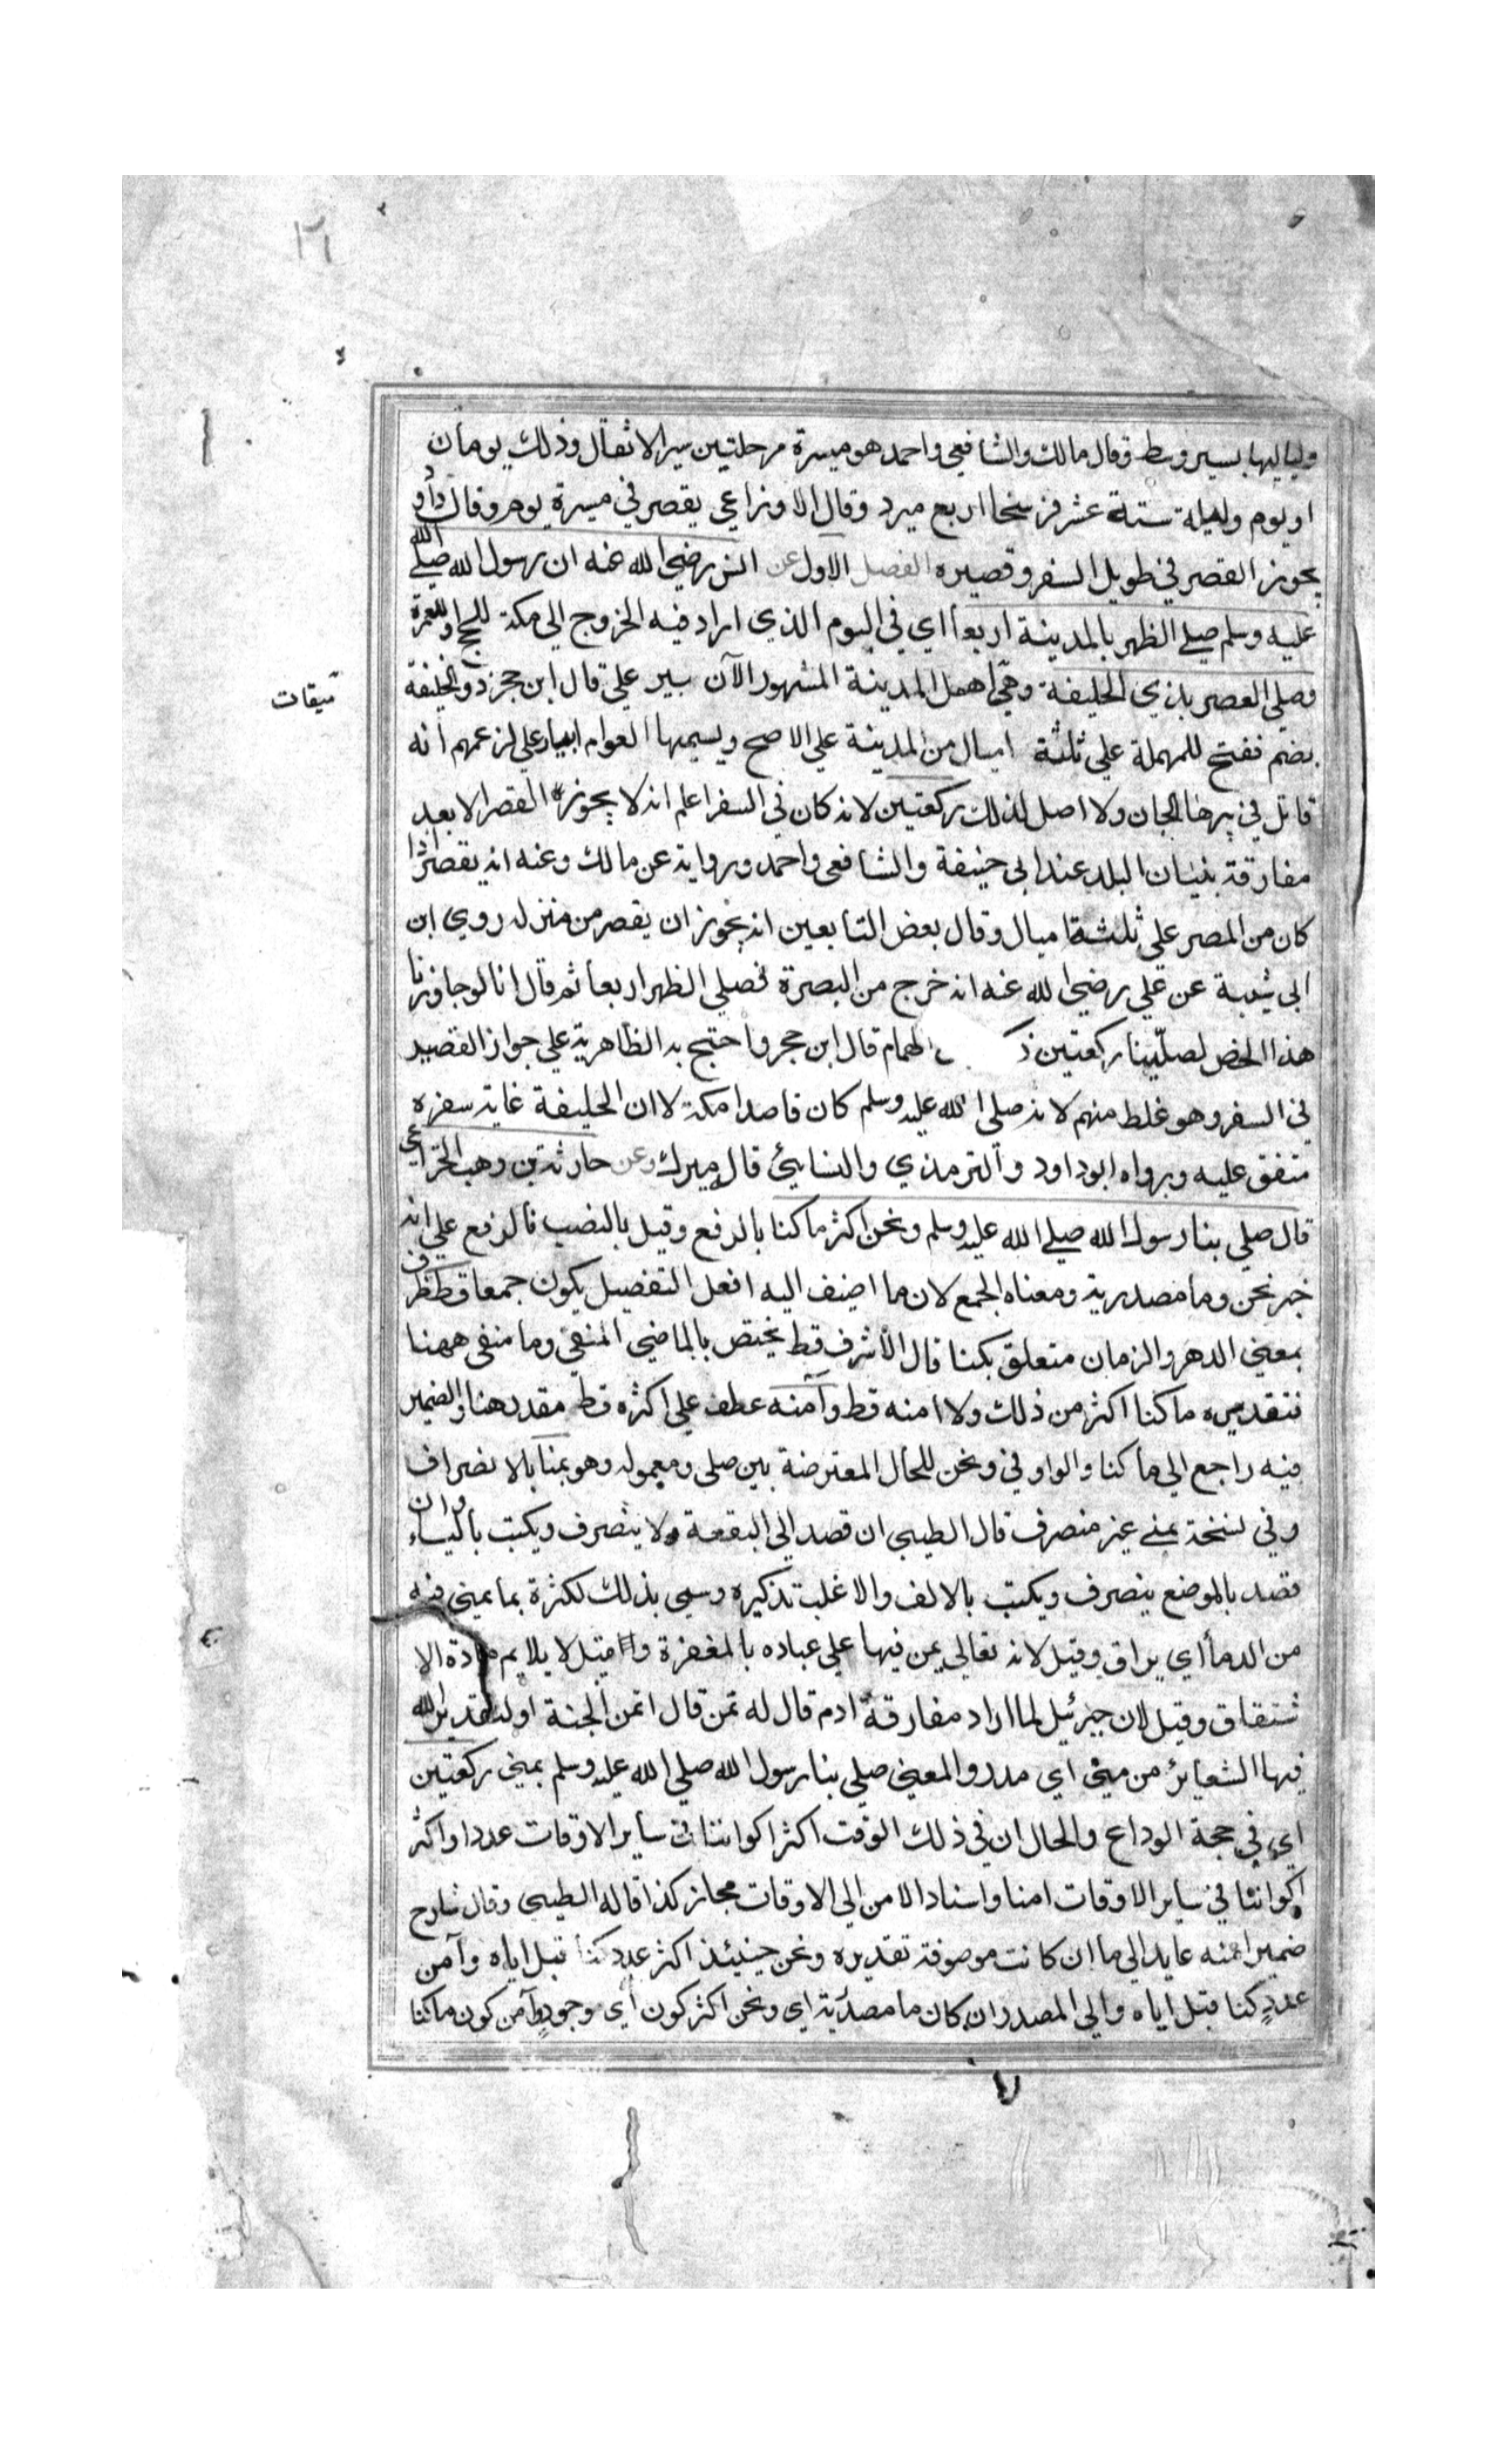 ولياليها بسير وسط وقال مالك والشافعي واحمد هو ميسرة مرحلتين سير الاثقال وذلك يومان
او يوم وليلة ستة عشر فرسخا اربع مبرد وقال الاوزاعي يقصر في ميسرة يوم وقال داود
يجوز القصر في طويل السفر وقصيره الفصل الاول عن انس رضي الله عنه ان رسول الله صلي الله
عليه وسلم صلي الظهر بالمدينة اربعا اي في اليوم الذي اراد فيه الخروج الي مكة للحج او للعمرة
وصلي العصر بذي الحليفة وهي اهل المدينة المشهور الآن ببير علي قال ابن حجر ذو الحليفة
ميقات
بضم ففتح للمهملة علي ثلثة اميال من المدينة علي الاصح ويسميها العوام ابيار علي لزعمهم انه
قاتل في بيرها الجان ولا اصل لذلك ركعتين لانه كان في السفر اعلم انه لا يجوز القصر الا بعد
مفارقة بنيان البلد عند ابي حنيفة والشافعي واحمد ورواية عن مالك وعنه انه يقصر اذا
كان من المصر علي ثلثة اميال وقال بعض التابعين انه يجوز ان يقصر من منزله روي ابن
ابي شيبة عن علي رضي الله عنه انه خرج من البصرة فصلي الظهر اربعا ثم قال انا لو جاوزنا
هذا الخص لصلّينا ركعتين الهمام قال ابن حجر واحتج به الظاهرية علي جواز القصر
في السفر وهو غلط منهم لانه صلي الله عليه وسلم كان قاصدا مكة لا ان الحليفة غاية سفره
متفق عليه ورواه ابو داود والترمذي والنسائي قال ميرك وعن حارثة بن وهب الخزاعي
قال صلي بنا رسول الله صلي الله عليه وسلم ونحن اكثر ما كنا بالرفع وقيل بالنصب فالرفع علي انه
خبر نحن وما مصدرية ومعناه الجمع لان ما اضيف اليه افعل التفضيل يكون جمعا قط ظرف
بمعني الدهر والزمان متعلق بكنا قال الاشرف قط يختص بالماضي المنفي وما منفي ههنا
فتقديره ما كنا اكثر من ذلك ولا امنه قط وآمنه عطف علي اكثره قط مقدر هنا والضمير
فيه راجع الي ما كنا والواو في ونحن للحال المعترضة بين صلي ومعموله وهو بمنا بالانصراف
وفي نسخة بمني غير منصرف قال الطيبي ان قصد الي البقعة ولا ينصرف ويكتب بالياء وان
قصد بالموضع ينصرف ويكتب بالالف والاغلب تذكيره وسمي بذلك لكثرة بما يمني فيه
من الدما أي يراق وقيل لانه تعالي يمن فيها علي عباده بالمغفرة وما قيل لا يلايم مادة الا
شتقاق وقيل لان جبرئيل لما اراد مفارقة ادم قال له تمن قال اتمن الجنة او لتقدير الله
فيها الشعائر من مني اي مدد والمعني صلي بنا رسول الله صلي الله عليه وسلم بمني ركعتين
اي في حجة الوداع والحال ان في ذلك الوقت اكثر اكواننا في سأير الاوقات عددا واكثر
اكواننا في سأير الاوقات امنا واسناد الامن الي الاوقات مجاز كذا قاله الطيبي وقال شارح
ضمير امنه عايد الي ما ان كانت موصوفة تقديره ونحن حينئذ اكثر عدد كنا قبل اياه وآمن
عددٍ كنا قبل اياه والي المصدر ان كان ما مصدرية اي ونحن اكثر كون أي وجودٍ وآمن كون ما كنا